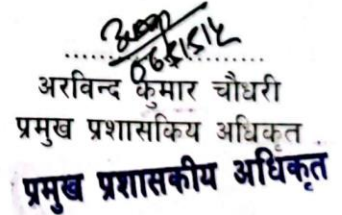 अरविन्द कुमार चौधरी
प्रमुख प्रशासकिय अधिकृत
प्रमुख प्रशासकीय अधिकृत